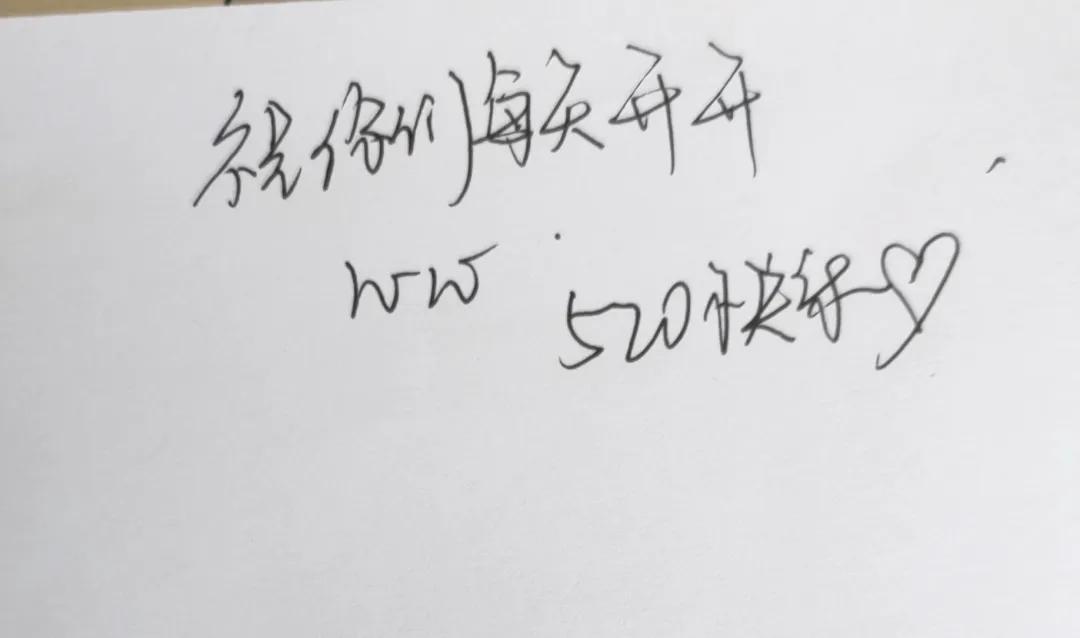 祝你们每天开开
心心
520快乐♡